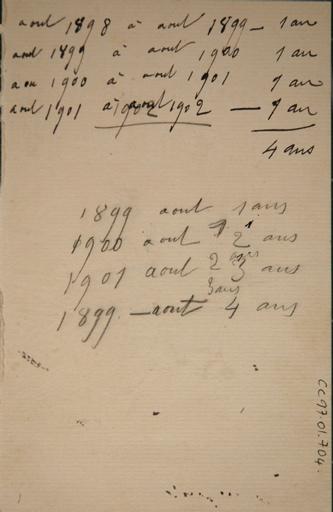 aout 1898 à aout 1899 — 1 an
aout 1899 à aout 1900 1 an
aou 1900 à aout 1901 1 an
aout 1901 à aout 1902 — 1 an
4 ans
1899 aout 1 ans
1900 aout 2 ans
1901 aout 2 3 ans
3 ans
1899 — aout 4 ans
CC97.01.704.